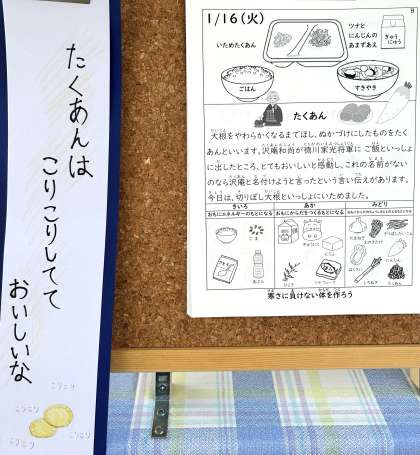 たくあんは
こりこりしてて
おいしいな
こりこり
こりこり
こりこり
こりこり
8
1/16(火)
いためたくあん
ツナと
にんじんの
あまずあえ
ぎゅう
にゅう
ごはん
すきやき
たくあん
大根をやわらかくなるまでほし、ぬかづけにしたものをたく
あんといいます。沢庵和尚が徳川家光将軍に ご飯といっしょ
に出したところ、とてもおいしいと感動し、これの名前がない
のなら沢庵と名付けようと言ったという言い伝えがあります。
今日は、切りぼし大根といっしょにいためました。
きいろ
あか
みどり
おもにエネルギーのもとになる
おもにからだをつくるもとになる
ごま
あぶら
ぎゅうにく
とうふ
ひじき
ツナフレーク
たまねぎ
えのきたけ
にんじん
はくさい
しらたき
たくあん
寒さに負けない体を作ろう